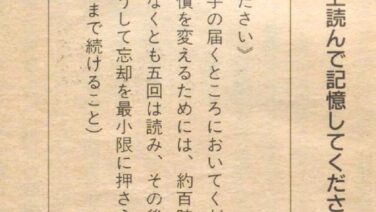 上読んで記憶してくださ
ださい》
手の届くところにおいてくだ
慣を変えるためには、約百時
なくとも五回は読み、その後
うして忘却を最小限に押さ
まで続けること）